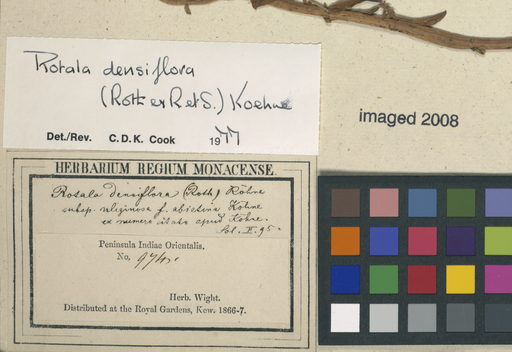 Rotala densiflora
(Roth ex R et S.) Koehne
Det./Rev. C. D. K. Cook 1977
imaged 2008
HERBARIUM REGIUM MONACENSE.
Rotala densiflora (Roth) Köhne
subsp. uliginosa f. abietina Kohne
ex numero citato apud Kohne.
Sol. II. 95.
Peninsula Indiae Orientalis.
No.
Herb. Wight.
Distributed at the Royal Gardens, Kew. 1866-7.